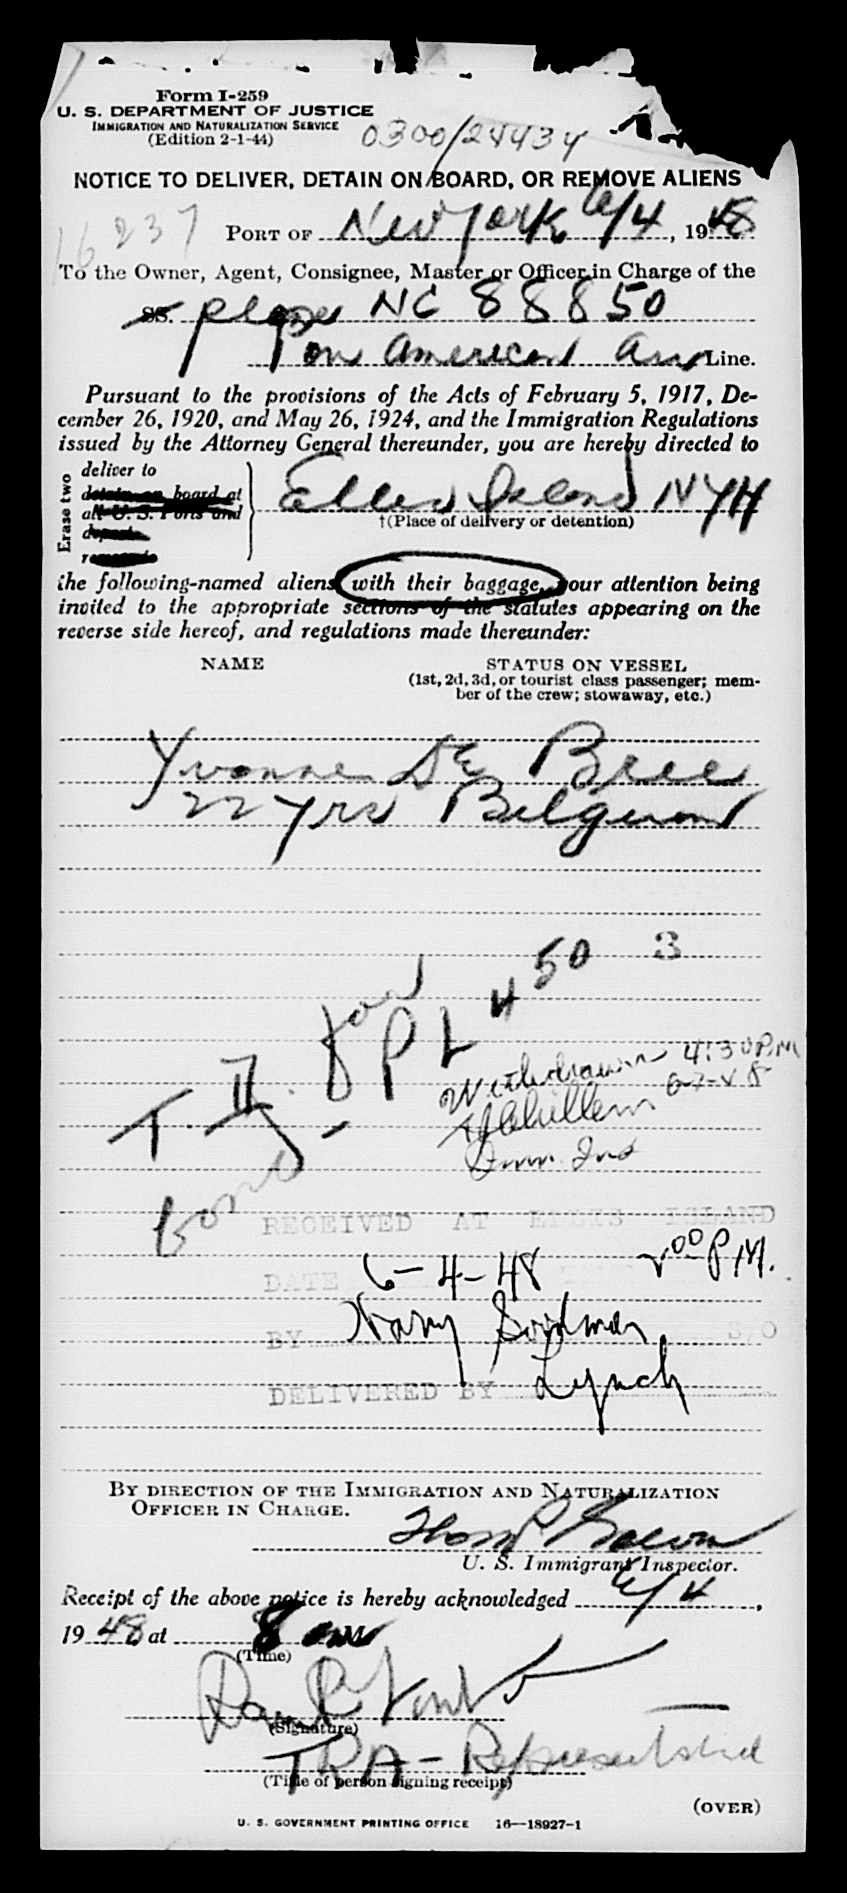 Form I-259
U. S. DEPARTMENT OF JUSTICE
IMMIGRATION AND NATURALIZATION SERVICE
(Edition 2-1-44)
0300/24434
NOTICE TO DELIVER, DETAIN ON BOARD, OR REMOVE ALIENS
16237
PORT OF New York 6/4, 1948
To the Owner, Agent, Consignee, Master or Officer in Charge of the
SS. plane NC 88850
Pan American Air Line.
Pursuant to the provisions of the Acts of February 5, 1917, De-
cember 26, 1920, and May 26, 1924, and the Immigration Regulations
issued by the Attorney General thereunder, you are hereby directed to
Erase two
deliver to
detain on board at
all U. S. Ports and
deport
remove
Ellis Island NYH
†(Place of delivery or detention)
the following-named aliens with their baggage, your attention being
invited to the appropriate sections of the statutes appearing on the
reverse side hereof, and regulations made thereunder:
NAME
STATUS ON VESSEL
(1st, 2d, 3d, or tourist class passenger; mem-
ber of the crew; stowaway, etc.)
Yvonne De Bree
22 yrs Belgium
3
450
for
P L
T. II.
Bond
Withdrawn 4:30 P.M
6-7-48
Imm. Ins
RECEIVED AT ELLIS ISLAND
DATE 6-4-48 2 00 P.M.
BY Harry Goodman S/O
DELIVERED BY Lynch
BY DIRECTION OF THE IMMIGRATION AND NATURALIZATION
OFFICER IN CHARGE.
U. S. Immigrant Inspector.
Receipt of the above notice is hereby acknowledged 6/4,
1948 at 8 am M
(Time)
(Signature)
(Title of person signing receipt)
(OVER)
U. S. GOVERNMENT PRINTING OFFICE 16—18927-1